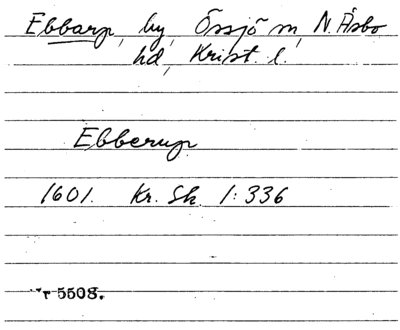 Ebbarp, by, Össjö sn, N. Åsbo
hd, Krist. l.
Ebberup
1601. Kr. Sk. 1:336
r 5508.